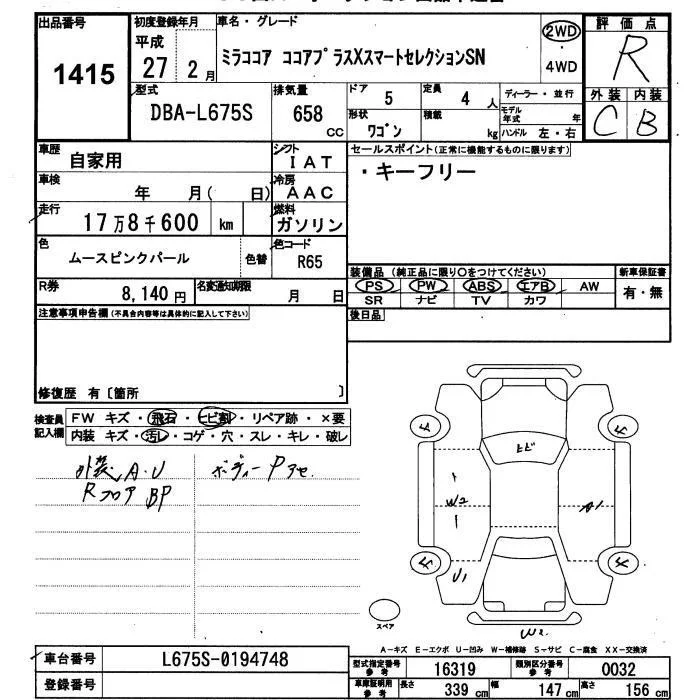 出品番号
1415
初度登録年月
平成
27年 2月
車名・グレード
ミラココア ココアプラスXスマートセレクションSN
2WD
・
4WD
評価点
R
外装 内装
C B
型式
DBA-L675S
排気量
658
cc
ドア
5
定員
4 人
ディーラー・並行
モデル年式 年
形状
ワゴン
積載
kg
ハンドル 左・右
車歴
自家用
シフト
IAT
セールスポイント(正常に機能するものに限ります)
・キーフリー
車検
年 月( 日)
冷房
AAC
走行
17万8千600 km
燃料
ガソリン
色
ムースピンクパール
色替
色コード
R65
装備品 (純正品に限り○をつけてください)
新車保証書
PS PW ABS エアB AW
有・無
SR ナビ TV カワ
R券
8,140 円
名変通知期限
月 日
後日品
注意事項申告欄(不具合内容等は具体的に記入して下さい)
修復歴 有〔箇所 〕
検査員記入欄
FW キズ・飛石・ヒビ割・リペア跡・×要
内装 キズ・汚レ・コゲ・穴・スレ・キレ・破レ
外装A.U
RフロアBP
ボディーPアセ
ヒビ
W2
A1
U1
W2
スペア
A-キズ E-エクボ U-凹み W-補修跡 S-サビ C-腐食 XX-交換済
車台番号
L675S-0194748
型式指定番号 参考
16319
類別区分番号 参考
0032
登録番号
車庫証明用 参考
長さ 339 cm
幅 147 cm
高さ 156 cm